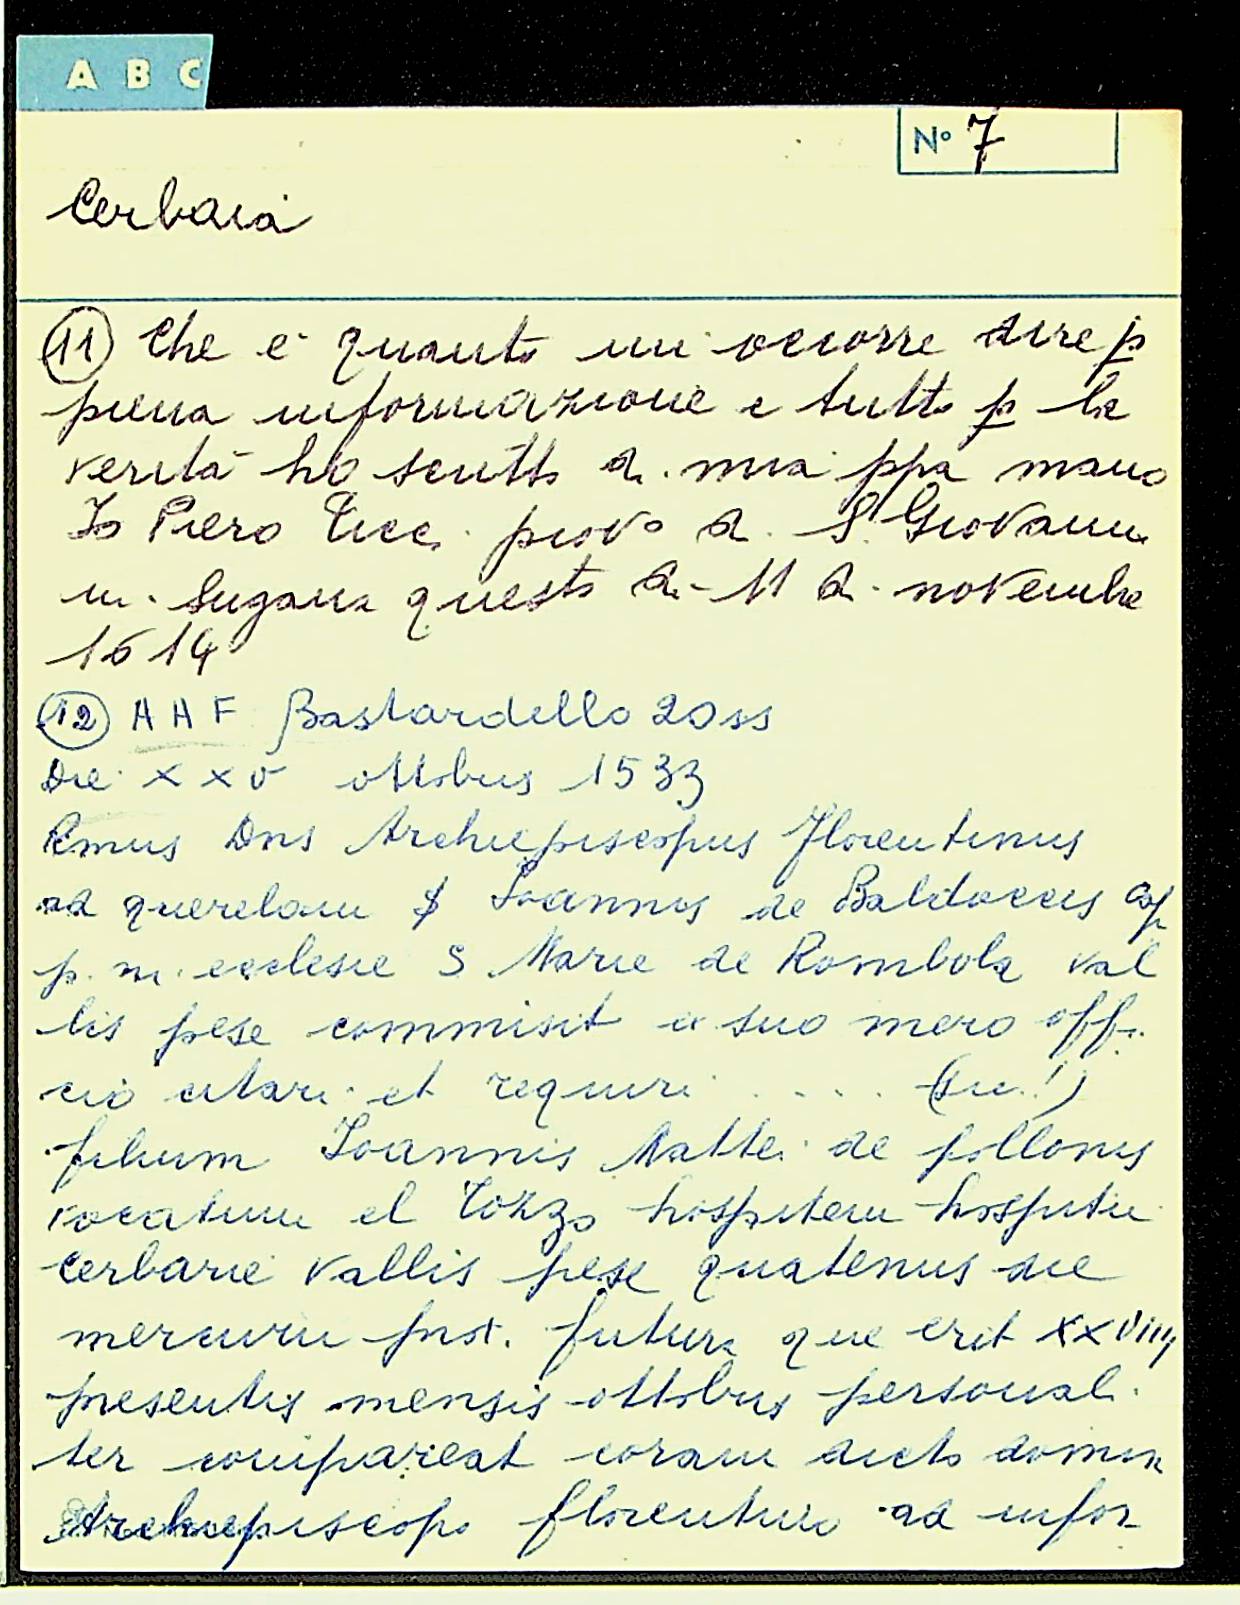 A B C
Nº 7
Cerbaia
(11) Che è quanto mi occorre dire p
piena informazione e tutto p la
verità ho scritto di mia ppa mano
Io Piero Ticci piovo di S. Giovanni
in Sugana questo di 11 di novembre
1614
(12) A A F Bastardello 20ss
Die XXV ottobris 1533
Rmus Dns Archiepiscopus Florentinus
ad querelam Ioannis de Baldoccis cap
p. in ecclesie S Marie de Rombola val
lis pese commisit ex suo mero offi
cio citari et requiri .... (sic!)
filium Ioannis Mattei de pillonis
vocatum el Tozzo hospitem hospitii
Cerbarie vallis pese quatenus die
mercurii prox. futura que erit XXVIIIJ
presentis mensis ottobris personali
ter compareat coram dicto domin
Archiepiscopo florentino ad infor